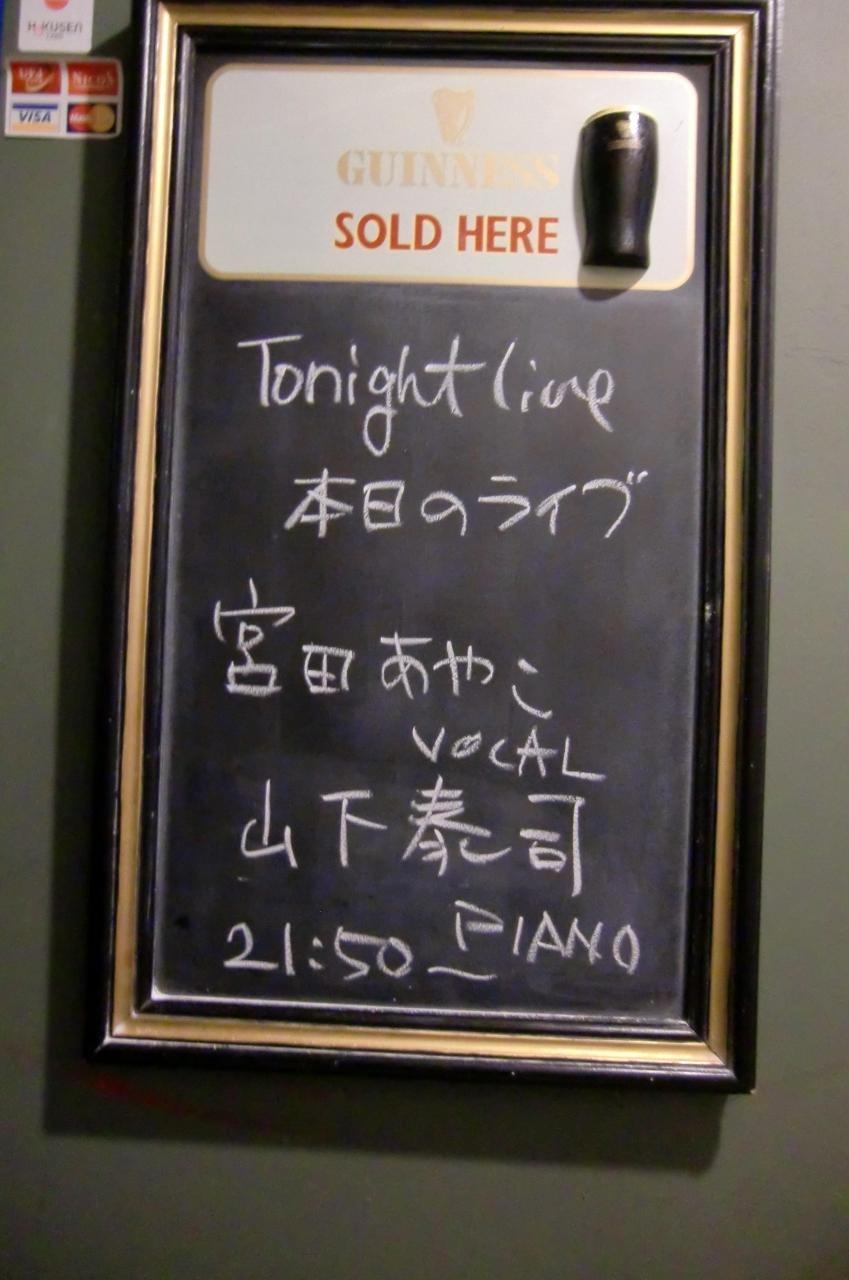 HOKUSEN
CARD
UFJ
NICOS
VISA
MasterCard
GUINNESS
SOLD HERE
Tonight live
本日のライブ
宮田あやこ
VOCAL
山下泰司
PIANO
21:50〜